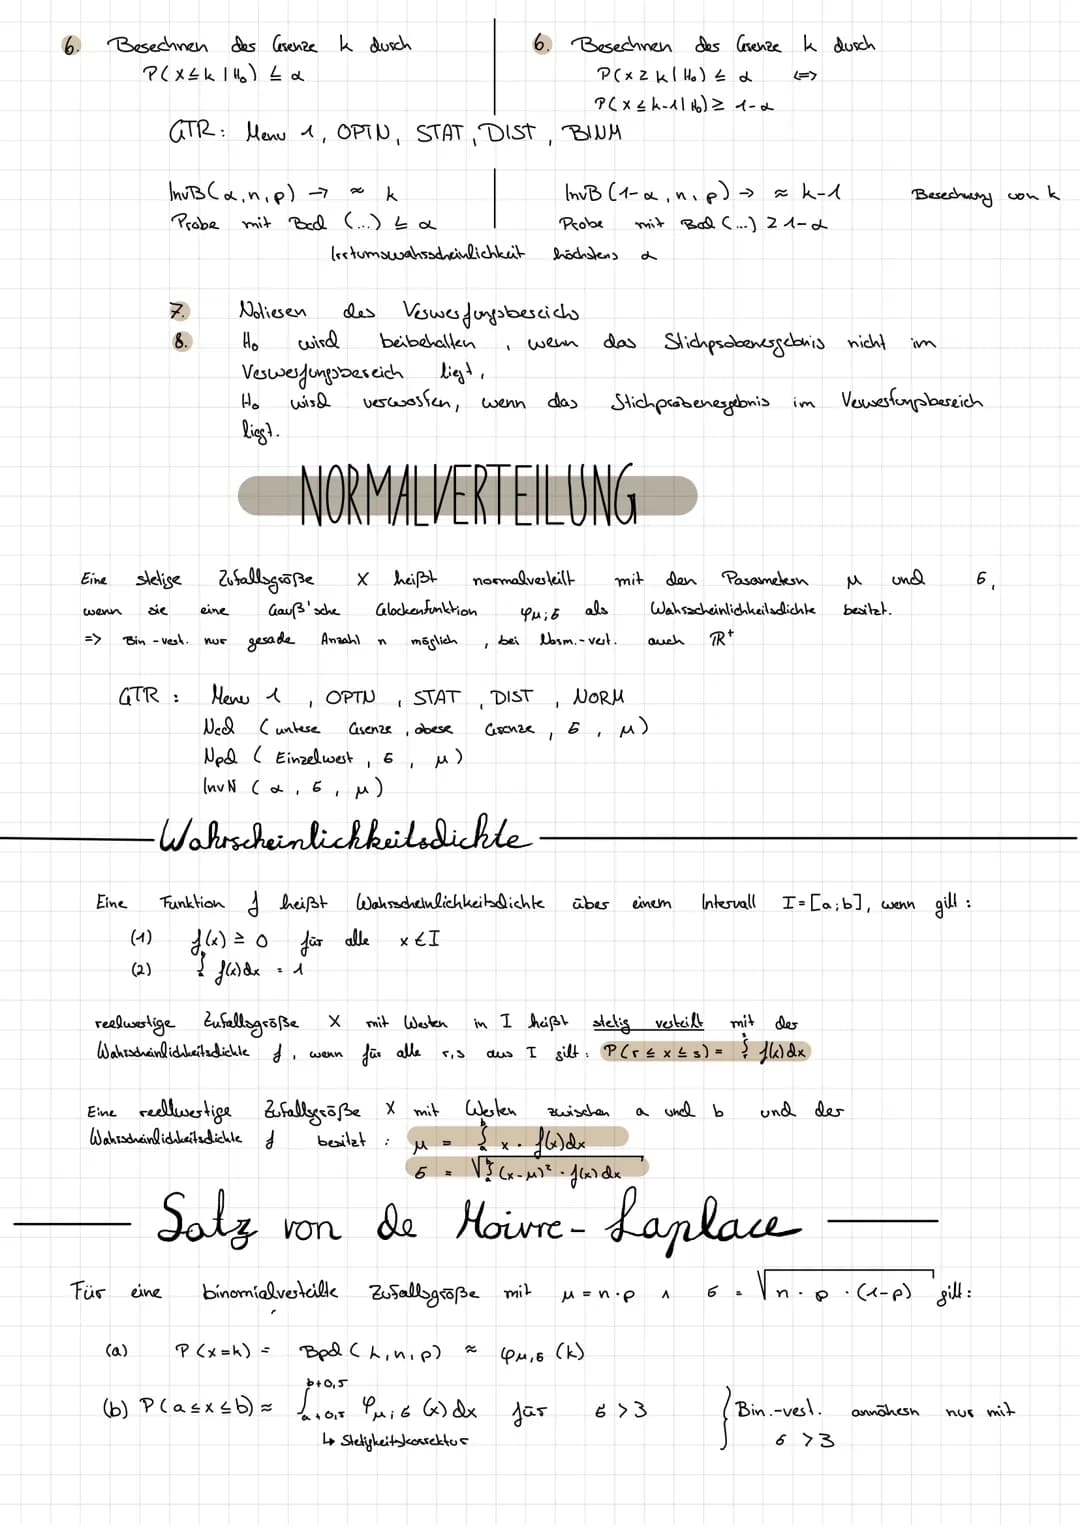 6. Berechnen der Grenze k durch
P(X≤k | H₀) ≤ α
6. Berechnen der Grenze k durch
P(X≥k | H₀) ≤ α <=>
P(X≤k-1 | H₀) ≥ 1-α
GTR: Menu 1, OPTN, STAT, DIST, BINM
InvB(α,n,p) → ≈ k
Probe mit Bcd (...) ≤ α
InvB (1-α,n,p) → ≈ k-1
Probe mit Bcd (...) ≥ 1-α
Berechnung von k
Irrtumswahrscheinlichkeit höchstens α
7. Notieren des Verwerfungsbereichs
8. H₀ wird beibehalten, wenn das Stichprobenergebnis nicht im
Verwerfungsbereich liegt,
H₀ wird verworfen, wenn das Stichprobenergebnis im Verwerfungsbereich
liegt.
NORMALVERTEILUNG
Eine stetige Zufallsgröße X heißt normalverteilt mit den Parametern μ und σ,
wenn sie eine Gauß'sche Glockenfunktion φμ;σ als Wahrscheinlichkeitsdichte besitzt.
=> Bin-vert. nur gerade Anzahl n möglich, bei Norm.-vert. auch ℝ⁺
GTR: Menu 1, OPTN, STAT, DIST, NORM
Ncd (untere Grenze, obere Grenze, σ, μ)
Npd (Einzelwert, σ, μ)
InvN (α, σ, μ)
Wahrscheinlichkeitsdichte
Eine Funktion f heißt Wahrscheinlichkeitsdichte über einem Intervall I=[a;b], wenn gilt:
(1) f(x) ≥ 0 für alle x∈I
(2) ∫ₐᵇ f(x)dx = 1
reelwertige Zufallsgröße X mit Werten in I heißt stetig verteilt mit der
Wahrscheinlichkeitsdichte f, wenn für alle r,s aus I gilt: P(r≤x≤s) = ∫ᵣˢ f(x)dx
Eine reellwertige Zufallsgröße X mit Werten zwischen a und b und der
Wahrscheinlichkeitsdichte f besitzt: μ = ∫ₐᵇ x·f(x)dx
σ = √∫ₐᵇ (x-μ)²·f(x)dx
Satz von de Moivre-Laplace
Für eine binomialverteilte Zufallsgröße mit μ=n·p ∧ σ = √n·p·(1-p) gilt:
(a) P(X=k) = Bpd(k,n,p) ≈ φμ,σ (k)
(b) P(a≤x≤b) ≈ ∫a+0,5 b+0,5 φμ;σ (x)dx für σ >3
↳ Stetigkeitskorrektur
} Bin.-vert. annähern nur mit
σ >3